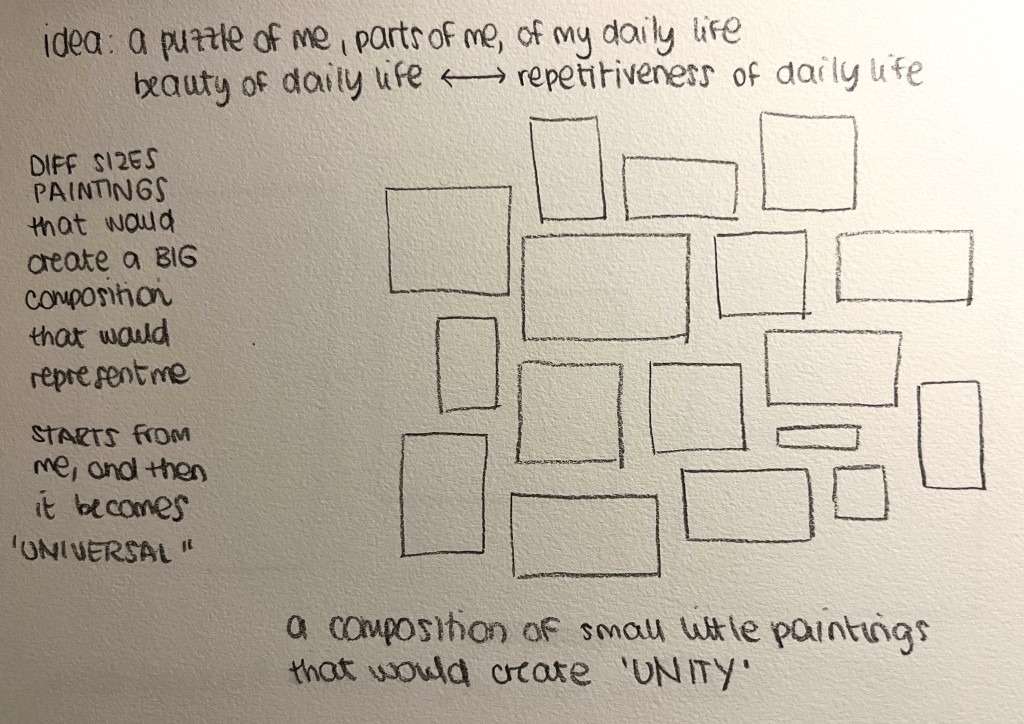 idea: a puzzle of me, parts of me, of my daily life
beauty of daily life ⟷ repetitiveness of daily life
DIFF SIZES
PAINTINGS
that would
create a BIG
composition
that would
represent me
STARTS from
me, and then
it becomes
'UNIVERSAL"
a composition of small little paintings
that would create 'UNITY'